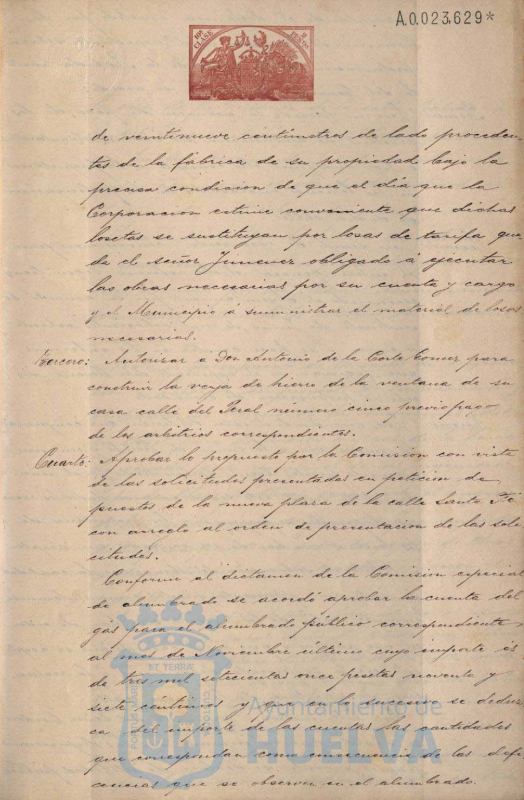 A.0.023.629*
10ª CLASE
2 PESETAS
de veintinueve centímetros de lado proceden-
tes de la fábrica de su propiedad bajo la
precisa condicion de que el día que la
Corporacion estime conveniente que dichas
losetas se sustituyan por losas de tarifa que-
da el señor Jimenez obligado á ejecutar
las obras necesarias por su cuenta y cargo
y el Municipio á suministrar el material de losas
necesarias.
Tercero: Autorizar á Don Antonio de la Corte Gomez para
construir la verja de hierro de la ventana de su
casa calle del Peral número cinco previo pago
de los arbitrios correspondientes.
Cuarto: Aprobar lo propuesto por la Comision con vista
de las solicitudes presentadas en peticion de
puestos de la nueva plaza de la calle Santa Fé
con arreglo al orden de presentacion de las soli-
citudes.
Conforme el dictamen de la Comision especial
de alumbrado se acordó aprobar la cuenta del
gas para el alumbrado público correspondiente
al mes de Noviembre último cuyo importe es
de tres mil setecientas once pesetas noventa y
siete centimos y que en lo sucesivo se deduz-
ca del importe de las cuentas las cantidades
que correspondan como consecuencia de las defi-
ciencias que se observen en el alumbrado.
Ayuntamiento de
HUELVA